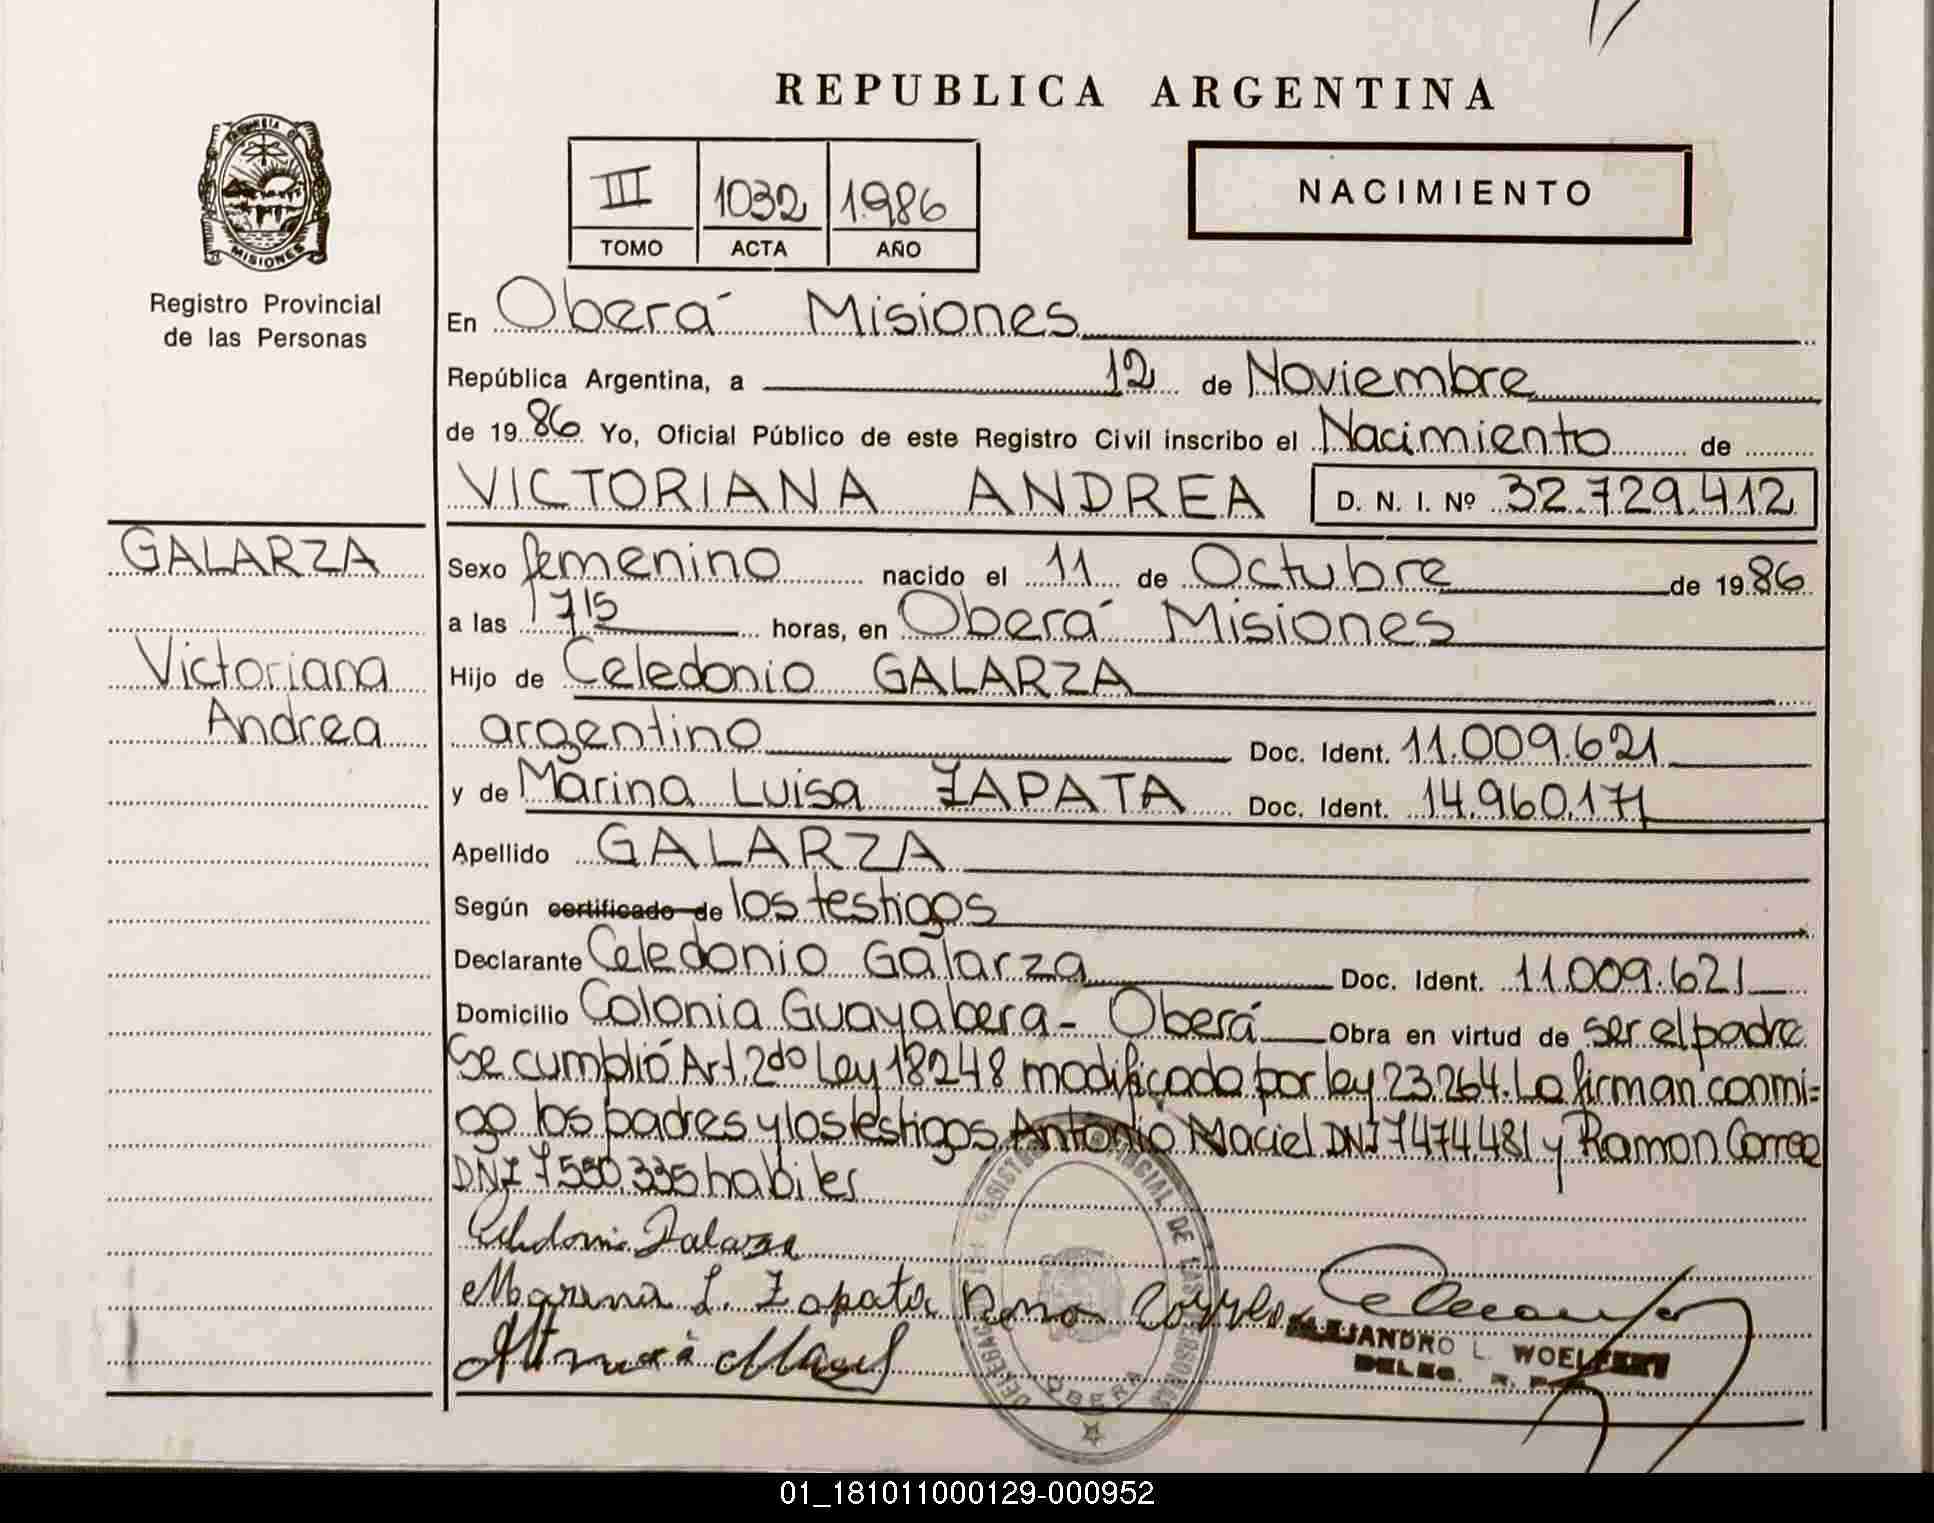 REPUBLICA ARGENTINA
PROVINCIA DE
MISIONES
Registro Provincial
de las Personas
III 1032 1986
TOMO ACTA AÑO
NACIMIENTO
En Oberá Misiones
República Argentina, a 12 de Noviembre
de 19 86 Yo, Oficial Público de este Registro Civil inscribo el Nacimiento de
VICTORIANA ANDREA D. N. I. Nº 32.729.412
GALARZA
Victoriana
Andrea
Sexo femenino nacido el 11 de Octubre de 19 86
a las 7 15 horas, en Oberá Misiones
Hijo de Celedonio GALARZA
argentino Doc. Ident. 11.009.621
y de Marina Luisa ZAPATA Doc. Ident. 14.960.171
Apellido GALARZA
Según certificado de los testigos
Declarante Celedonio Galarza Doc. Ident. 11.009.621
Domicilio Colonia Guayabera - Oberá Obra en virtud de ser el padre
Se cumplió Art. 2do Ley 18248 modificada por ley 23.264. La firman conmi=
go los padres y los testigos Antonio Maciel DNI 7474.481 y Ramon Correa
DNI 7.550.335 habiles
Celedonio Galarza
Marina L. Zapata Correa
Maciel
DELEGACION REGISTRO PROVINCIAL DE LAS PERSONAS
OBERA
ALEJANDRO L.
01_181011000129-000952